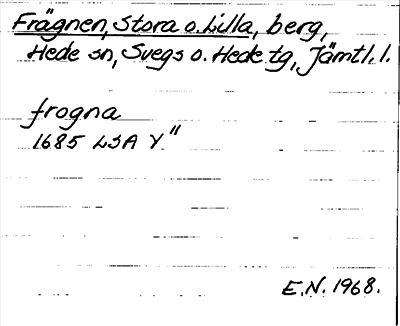 Frägnen, Stora o. Lilla, berg,
Hede sn, Svegs o. Hede tg, Jämtl. l.
frogna
1685 LSA Y"
E.N. 1968.